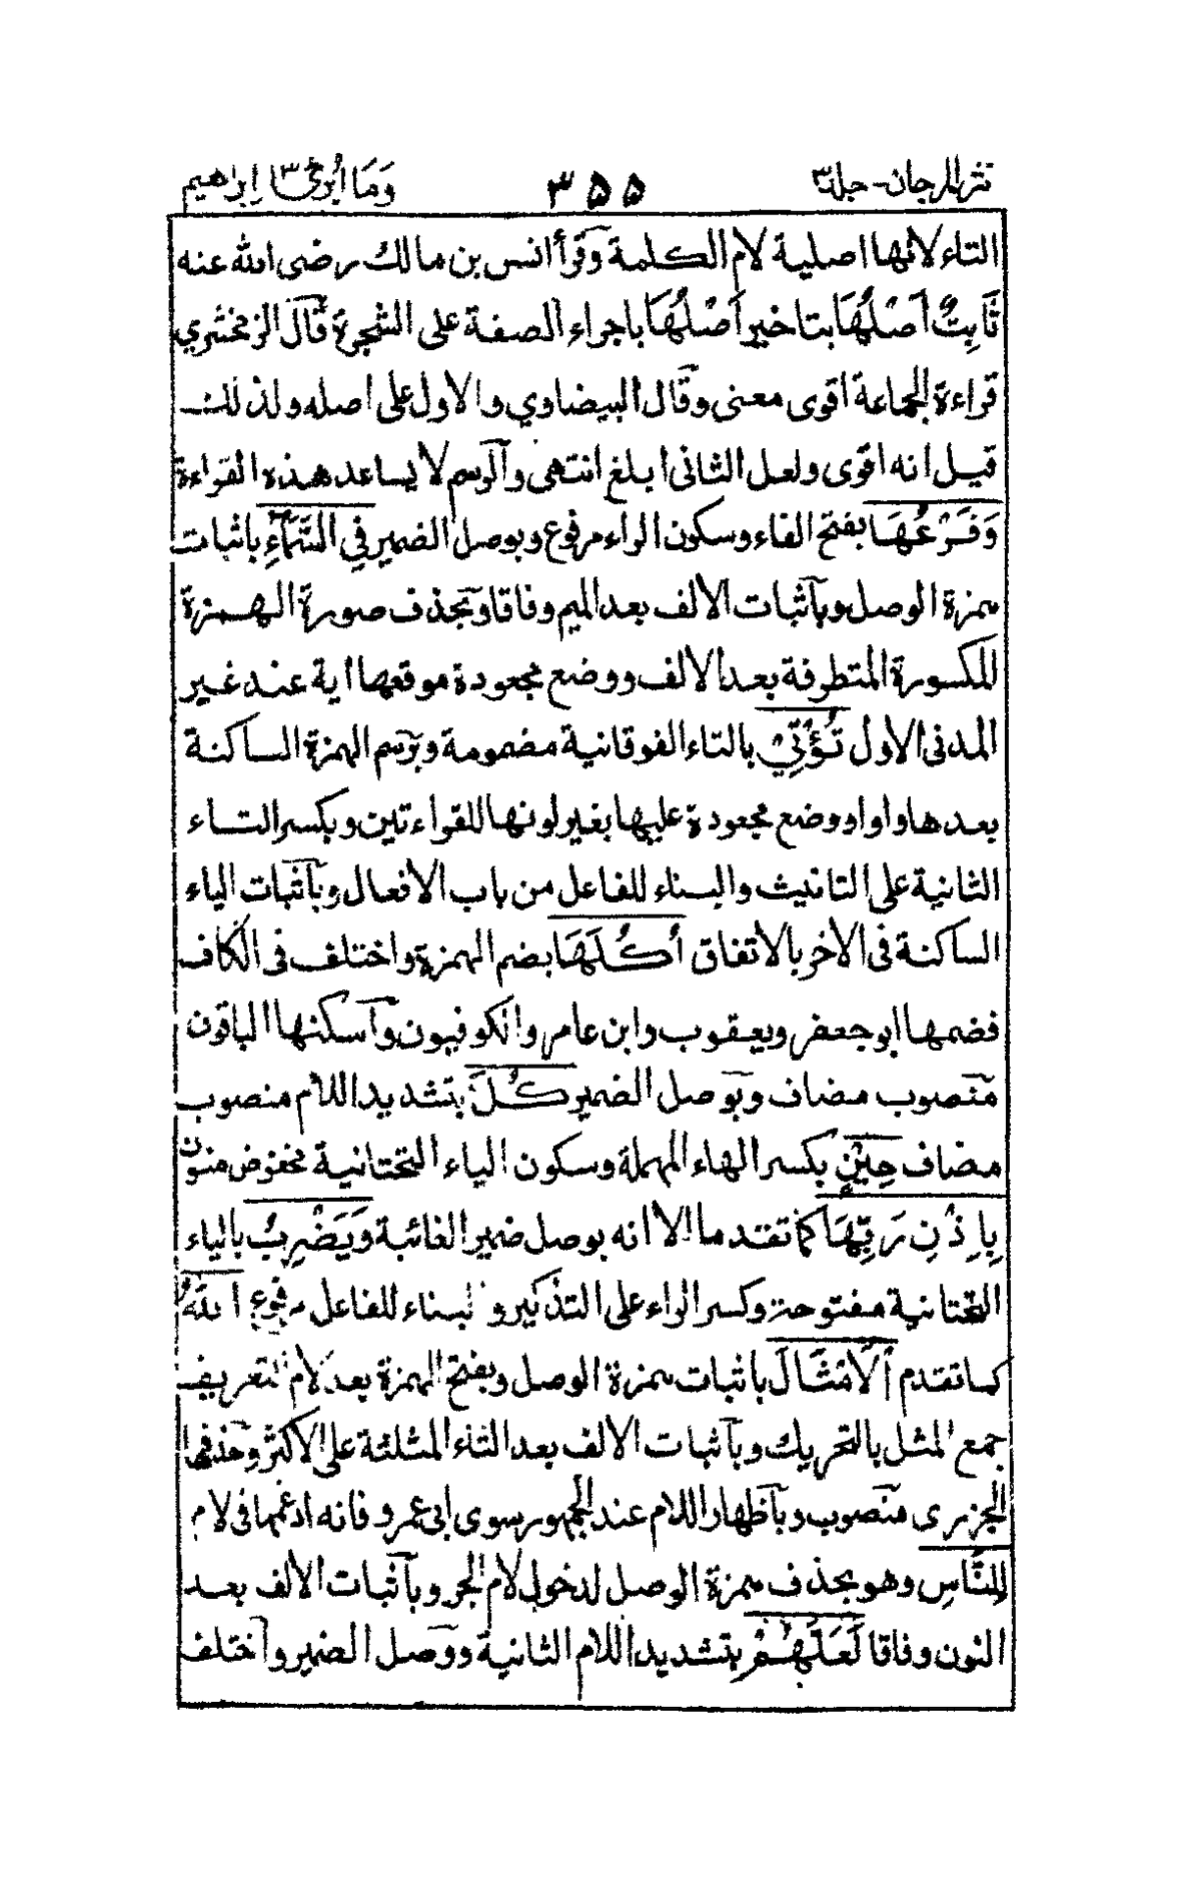 نثر المرجان - جلد ٣ ٣٥٥ وَمَا أُبَرِّئُ ١٣ إبراهيم
التاء لانها اصلية لام الكلمة وقرأ انس بن مالك رضى الله عنه
ثَابِتٌ أَصْلُهَا بتاخير أَصْلُهَا باجراء الصفة على الشجرة قال الزمخشري
قراءة الجماعة اقوى معنى وقال البيضاوي والاول على اصله ولذلك
قيل انه اقوى ولعل الثانى ابلغ انتهى والرسم لا يساعد هذه القراءة
وَفَرْعُهَا بفتح الفاء وسكون الراء مرفوع وبوصل الضمير فِي السَّمَآءِ باثبات
همزة الوصل وباثبات الالف بعد الميم وفاقا وبحذف صورة الهمزة
المكسورة المتطرفة بعد الالف ووضع مجعودة موقعها اية عند غير
المدنى الاول تُؤْتِيْ بالتاء الفوقانية مضمومة وبرسم الهمزة الساكنة
بعدها واوا ووضع مجعودة عليها بغير لونها للقراءتين وبكسر التاء
الثانية على التانيث والبناء للفاعل من باب الافعال وباثبات الياء
الساكنة فى الاخر بالاتفاق أُكُلَهَا بضم الهمزة واختلف فى الكاف
فضمها ابو جعفر ويعقوب وابن عامر والكوفيون واسكنها الباقون
منصوب مضاف وبوصل الضمير كُلَّ بتشديد اللام منصوب
مضاف حِيْنٍ بكسر الهاء المهملة وسكون الياء التحتانية مخفوض منون
بِإِذْنِ رَبِّهَا كما تقدما الا انه بوصل ضمير الغائبة وَيَضْرِبُ بالياء
التحتانية مفتوحة وكسر الراء على التذكير والبناء للفاعل مرفوع اللهُ
كما تقدم اَلْأَمْثَالَ باثبات همزة الوصل وبفتح الهمزة بعد لام التعريف
جمع المثل بالتحريك وباثبات الالف بعد الثاء المثلثة على الاكثر وحذفها
الجزرى منصوب وباظهار اللام عند الجمهور سوى ابى عمرو فانه ادغمها فى لام
لِلنَّاسِ وهو بحذف همزة الوصل لدخول لام الجر وباثبات الالف بعد
النون وفاقا لَعَلَّهُمْ بتشديد اللام الثانية ووصل الضمير واختلف